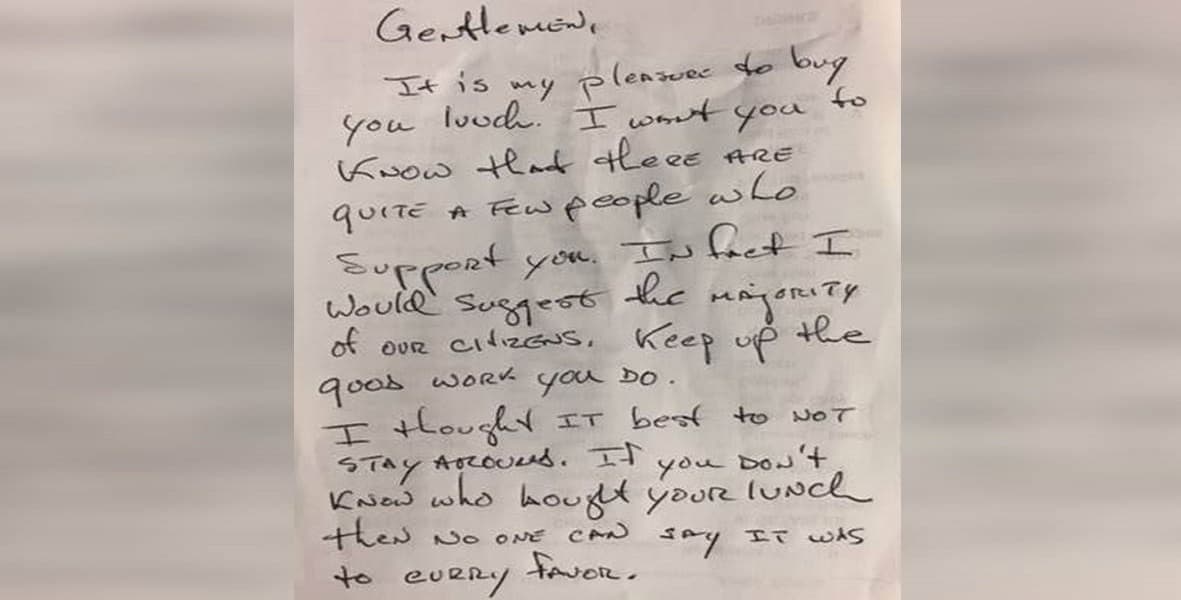 Gentlemen,
It is my pleasure to buy
you lunch. I want you to
know that there ARE
QUITE A FEW people who
Support you. In fact I
Would Suggest the MAJORITY
of OUR CITIZENS. Keep up the
good WORK you DO.
I thought IT best to NOT
STAY AROUND. If you DON't
Know who bought YOUR lunch
then NO ONE CAN SAY IT WAS
to CURRY FAVOR.